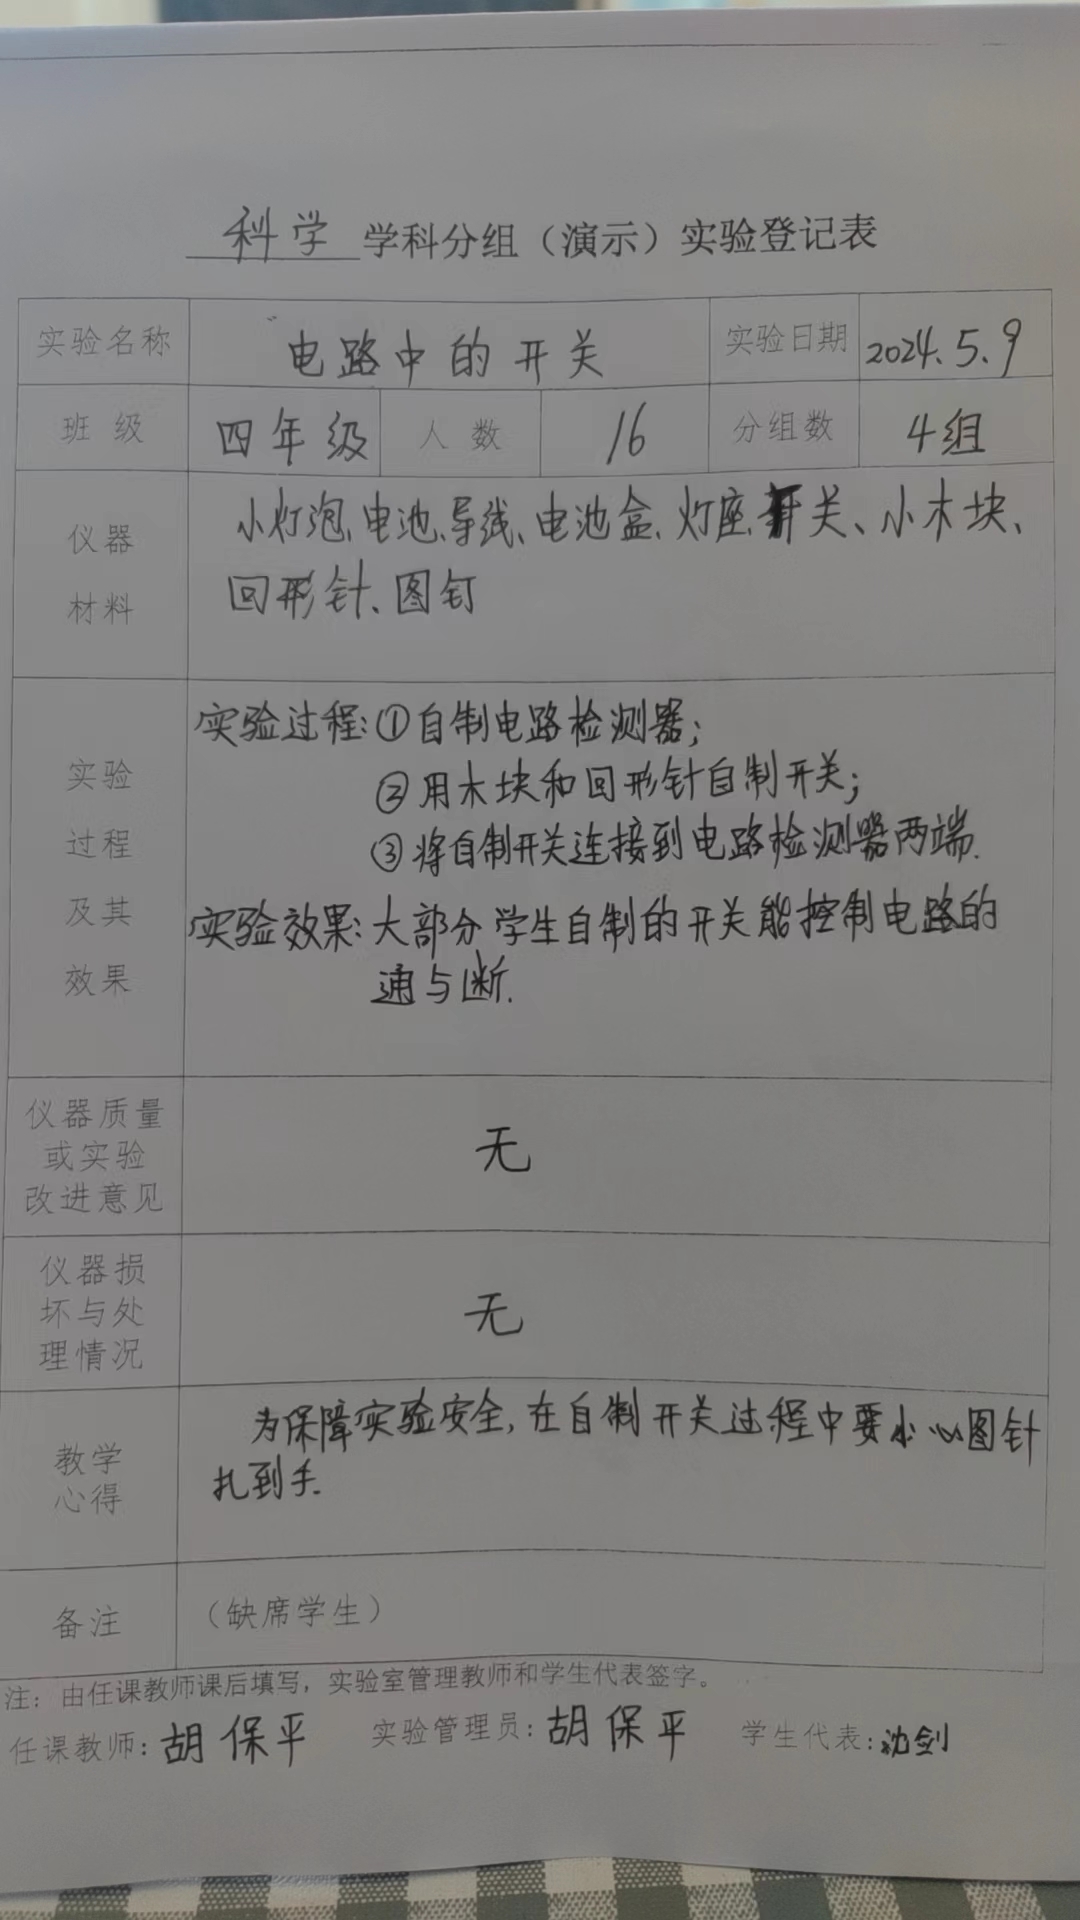 科学 学科分组（演示）实验登记表
实验名称 电路中的开关 实验日期 2024.5.9
班级 四年级 人数 16 分组数 4组
仪器
材料
小灯泡、电池、导线、电池盒、灯座、开关、小木块、
回形针、图钉
实验
过程
及其
效果
实验过程:①自制电路检测器;
②用木块和回形针自制开关;
③将自制开关连接到电路检测器两端.
实验效果:大部分学生自制的开关能控制电路的
通与断.
仪器质量
或实验
改进意见
无
仪器损
坏与处
理情况
无
教学
心得
为保障实验安全,在自制开关过程中要小心图针
扎到手.
备注 （缺席学生）
注：由任课教师课后填写，实验室管理教师和学生代表签字。
任课教师:胡保平 实验管理员:胡保平 学生代表:沈剑